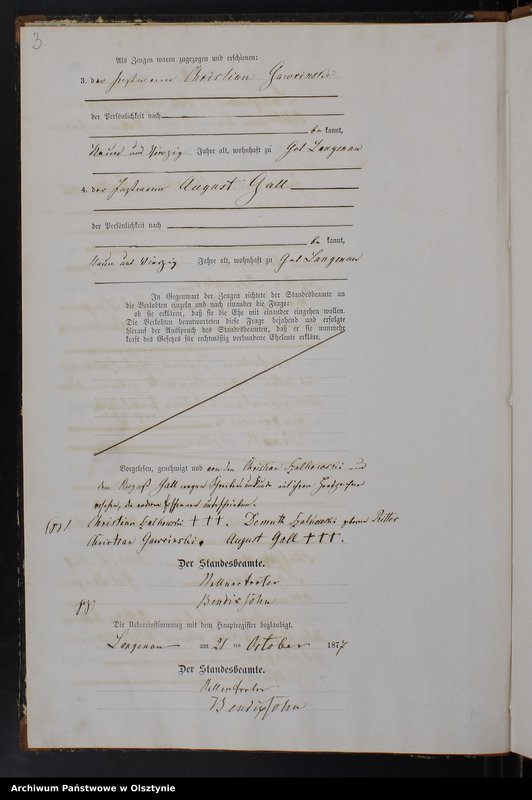 3
Als Zeugen waren zugezogen und erschienen:
3. der Instmann Christian Gawrinski
der Persönlichkeit nach
be kannt,
Neun und vierzig Jahre alt, wohnhaft zu Gut Langenau
4. der Instmann August Gall
der Persönlichkeit nach
be kannt,
Neun und vierzig Jahre alt, wohnhaft zu Gut Langenau
In Gegenwart der Zeugen richtete der Standesbeamte an
die Verlobten einzeln und nach einander die Frage:
ob sie erklären, daß sie die Ehe mit einander eingehen wollen.
Die Verlobten beantworteten diese Frage bejahend und erfolgte
hierauf der Ausspruch des Standesbeamten, daß er sie nunmehr
kraft des Gesetzes für rechtmäßig verbundene Eheleute erkläre.
Vorgelesen, genehmigt und von dem Christian Halkowski und
dem August Gall wegen Schreibensunkunde mit ihren Handzeichen
versehen, die anderen unterschrieben.
Christian Halkowski +++. Halkowski geborene Ritter
Christian Gawrinski. August Gall +++.
Der Standesbeamte.
Stellvertreter
Bendixsohn
Die Uebereinstimmung mit dem Hauptregister beglaubigt.
Langenau am 21 ten October 1877
Der Standesbeamte.
Stellvertreter
Bendixsohn
Archiwum Państwowe w Olsztynie